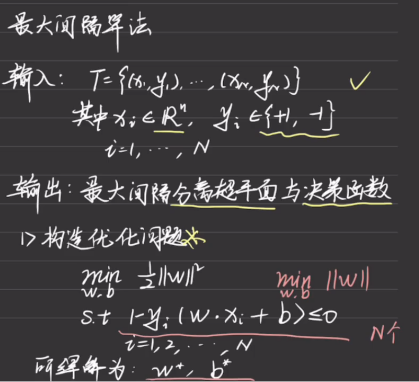 最大间隔算法
输入: T={(x₁,y₁),…,(x_N,y_N)} ✓
其中 xᵢ∈ℝⁿ, yᵢ∈{+1, -1}
i=1,…,N
输出: 最大间隔分离超平面与决策函数
1> 构造优化问题
min w,b ½||w||² min w,b ||w||
s.t 1-yᵢ(w·xᵢ+b)≤0 N个
i=1,2,…,N
所得解为: w*, b*